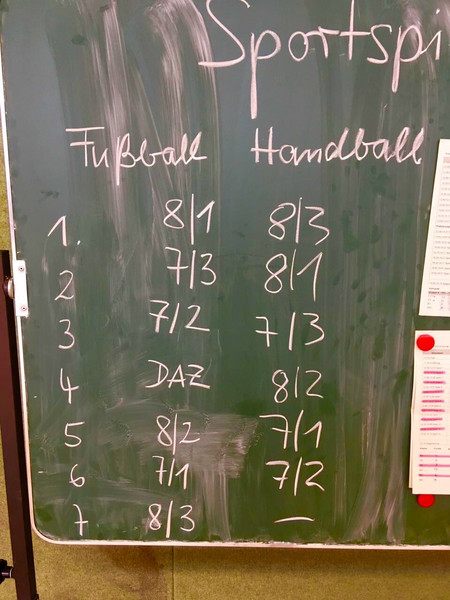 Sportspi
Fußball Handball
1. 8/1 8/3
2 7/3 8/1
3 7/2 7/3
4 DAZ 8/2
5 8/2 7/1
6 7/1 7/2
7 8/3 —